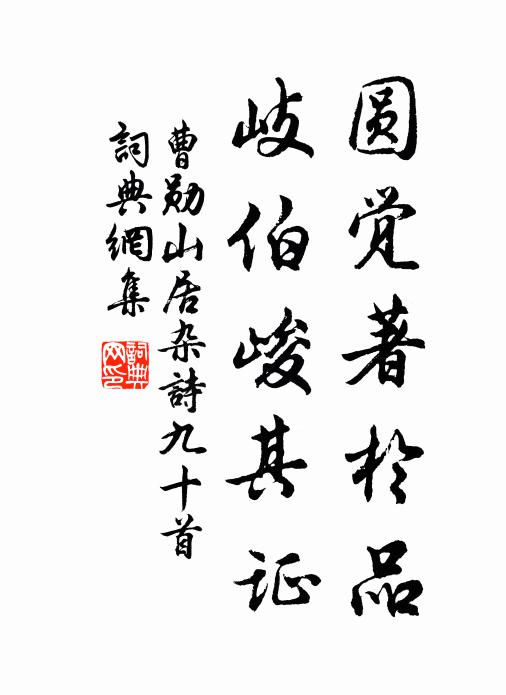 圆觉著於品
岐伯峻其证
曹勋山居杂詩九十首
詞典網集
詞典网印